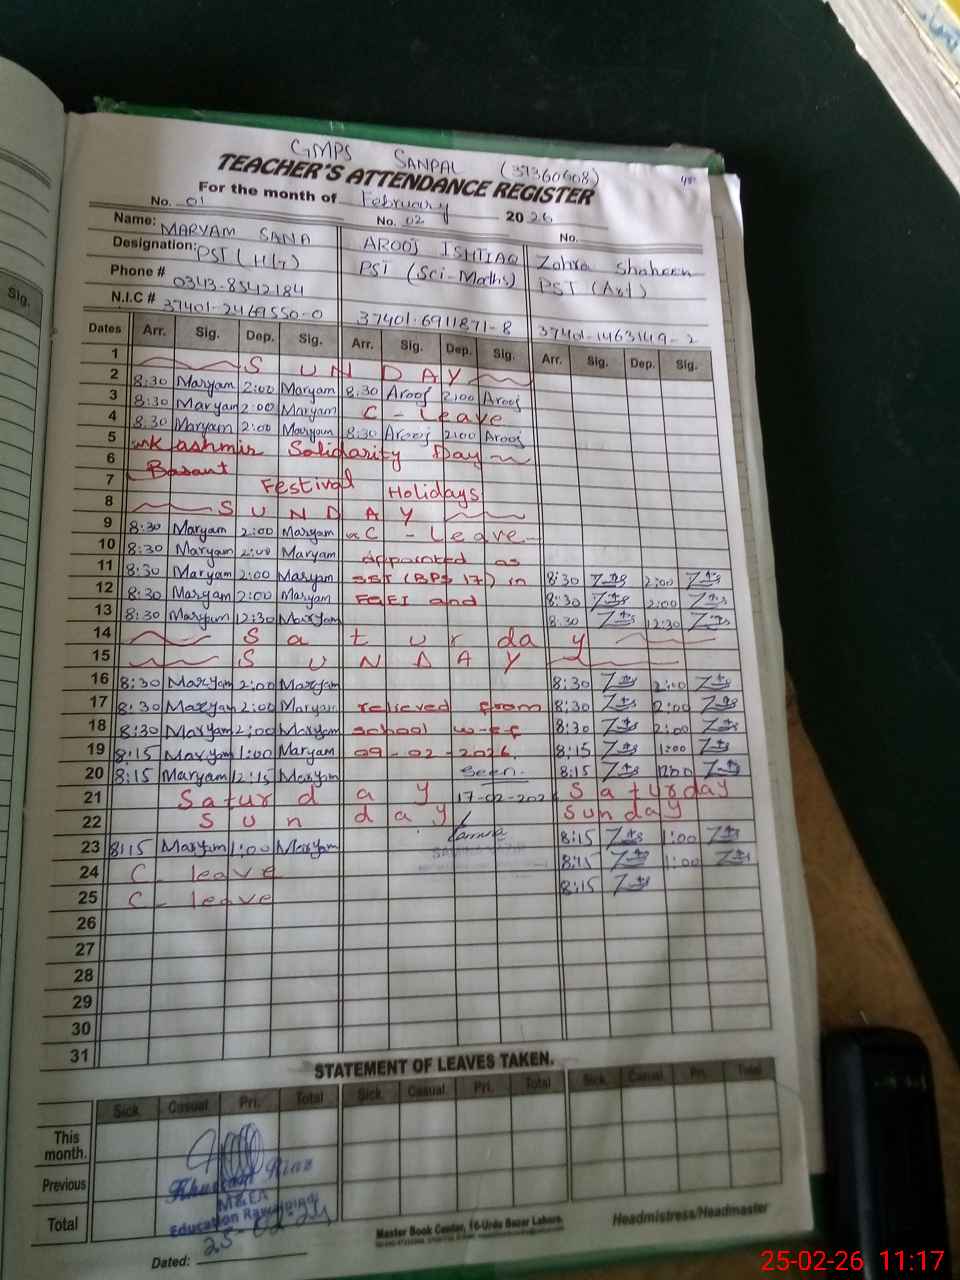 GMPS SANPAL (37360608)
TEACHER'S ATTENDANCE REGISTER
For the month of February 2026
No. 01 No. 02 No.
Name: MARYAM SANA AROOJ ISHTIAQ Zahra Shaheen
Designation: PST (H/T) PST (Sci-Maths) PST (Art)
Phone # 0343-8542184
N.I.C # 37401-2469550-0 37401-6911871-8 37401-1463149-2
Dates Arr. Sig. Dep. Sig. Arr. Sig. Dep. Sig. Arr. Sig. Dep. Sig.
1 SUNDAY
2 8:30 Maryam 2:00 Maryam 8:30 Arooj 2:00 Arooj
3 8:30 Maryam 2:00 Maryam C - Leave
4 8:30 Maryam 2:00 Maryam 8:30 Arooj 2:00 Arooj
5 Kashmir Solidarity Day
6 Basant
7 Festival Holidays
8 SUNDAY
9 8:30 Maryam 2:00 Maryam C - Leave
10 8:30 Maryam 2:00 Maryam appointed as
11 8:30 Maryam 2:00 Maryam SST (BPS 17) in 8:30 2:00
12 8:30 Maryam 2:00 Maryam FGEI and 8:30 2:00
13 8:30 Maryam 12:30 Maryam 8:30 12:30
14 Saturday
15 SUNDAY
16 8:30 Maryam 2:00 Maryam 8:30 2:00
17 8:30 Maryam 2:00 Maryam relieved from 8:30 2:00
18 8:30 Maryam 2:00 Maryam school w-e-f 8:30 2:00
19 8:15 Maryam 1:00 Maryam 09-02-2026. 8:15 1:00
20 8:15 Maryam 12:15 Maryam Seen. 8:15
21 Saturday 17-02-202 Saturday
22 Sunday Sunday
23 8:15 Maryam 1:00 Maryam 8:15 1:00
24 C- leave 8:15 1:00
25 C- leave 8:15
26
27
28
29
30
31
STATEMENT OF LEAVES TAKEN.
Sick Casual Pri. Total Sick Casual Pri. Total Sick Casual Pri. Total
This month.
Previous
Total
Riaz
M&EA
Education Rawalpindi
Dated: 25-02-26
Master Book Center, 16-Urdu Bazar Lahore.
Headmistress/Headmaster
25-02-26 11:17